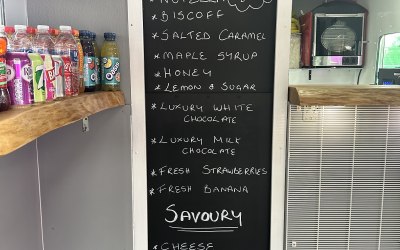 * NUTELLA
* BISCOFF
* SALTED CARAMEL
* MAPLE SYRUP
* HONEY
* LEMON & SUGAR
* LUXURY WHITE
CHOCOLATE
* LUXURY MILK
CHOCOLATE
* FRESH STRAWBERRIES
* FRESH BANANA
SAVOURY
* CHEESE